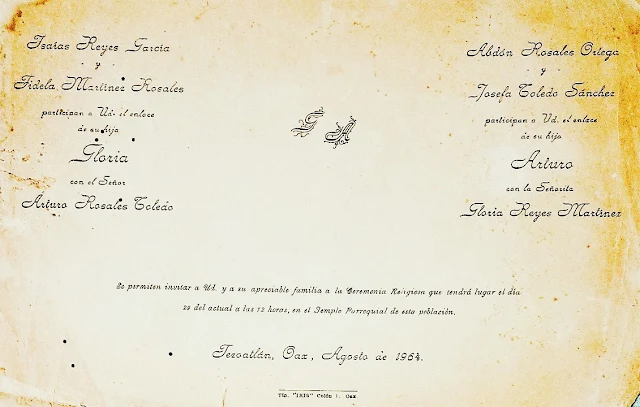 Isaías Reyes García
y
Fidela Martínez Rosales
participan a Ud. el enlace
de su hija
Gloria
con el Señor
Arturo Rosales Toledo
G A
Abdón Rosales Ortega
y
Josefa Toledo Sánchez
participan a Ud. el enlace
de su hijo
Arturo
con la Señorita
Gloria Reyes Martínez
Se permiten invitar a Ud. y a su apreciable familia a la Ceremonia Religiosa que tendrá lugar el día
29 del actual a las 12 horas, en el Templo Parroquial de esta población.
Tezoatlán, Oax., Agosto de 1964.
Tip. "IRIS" Colón Oax.